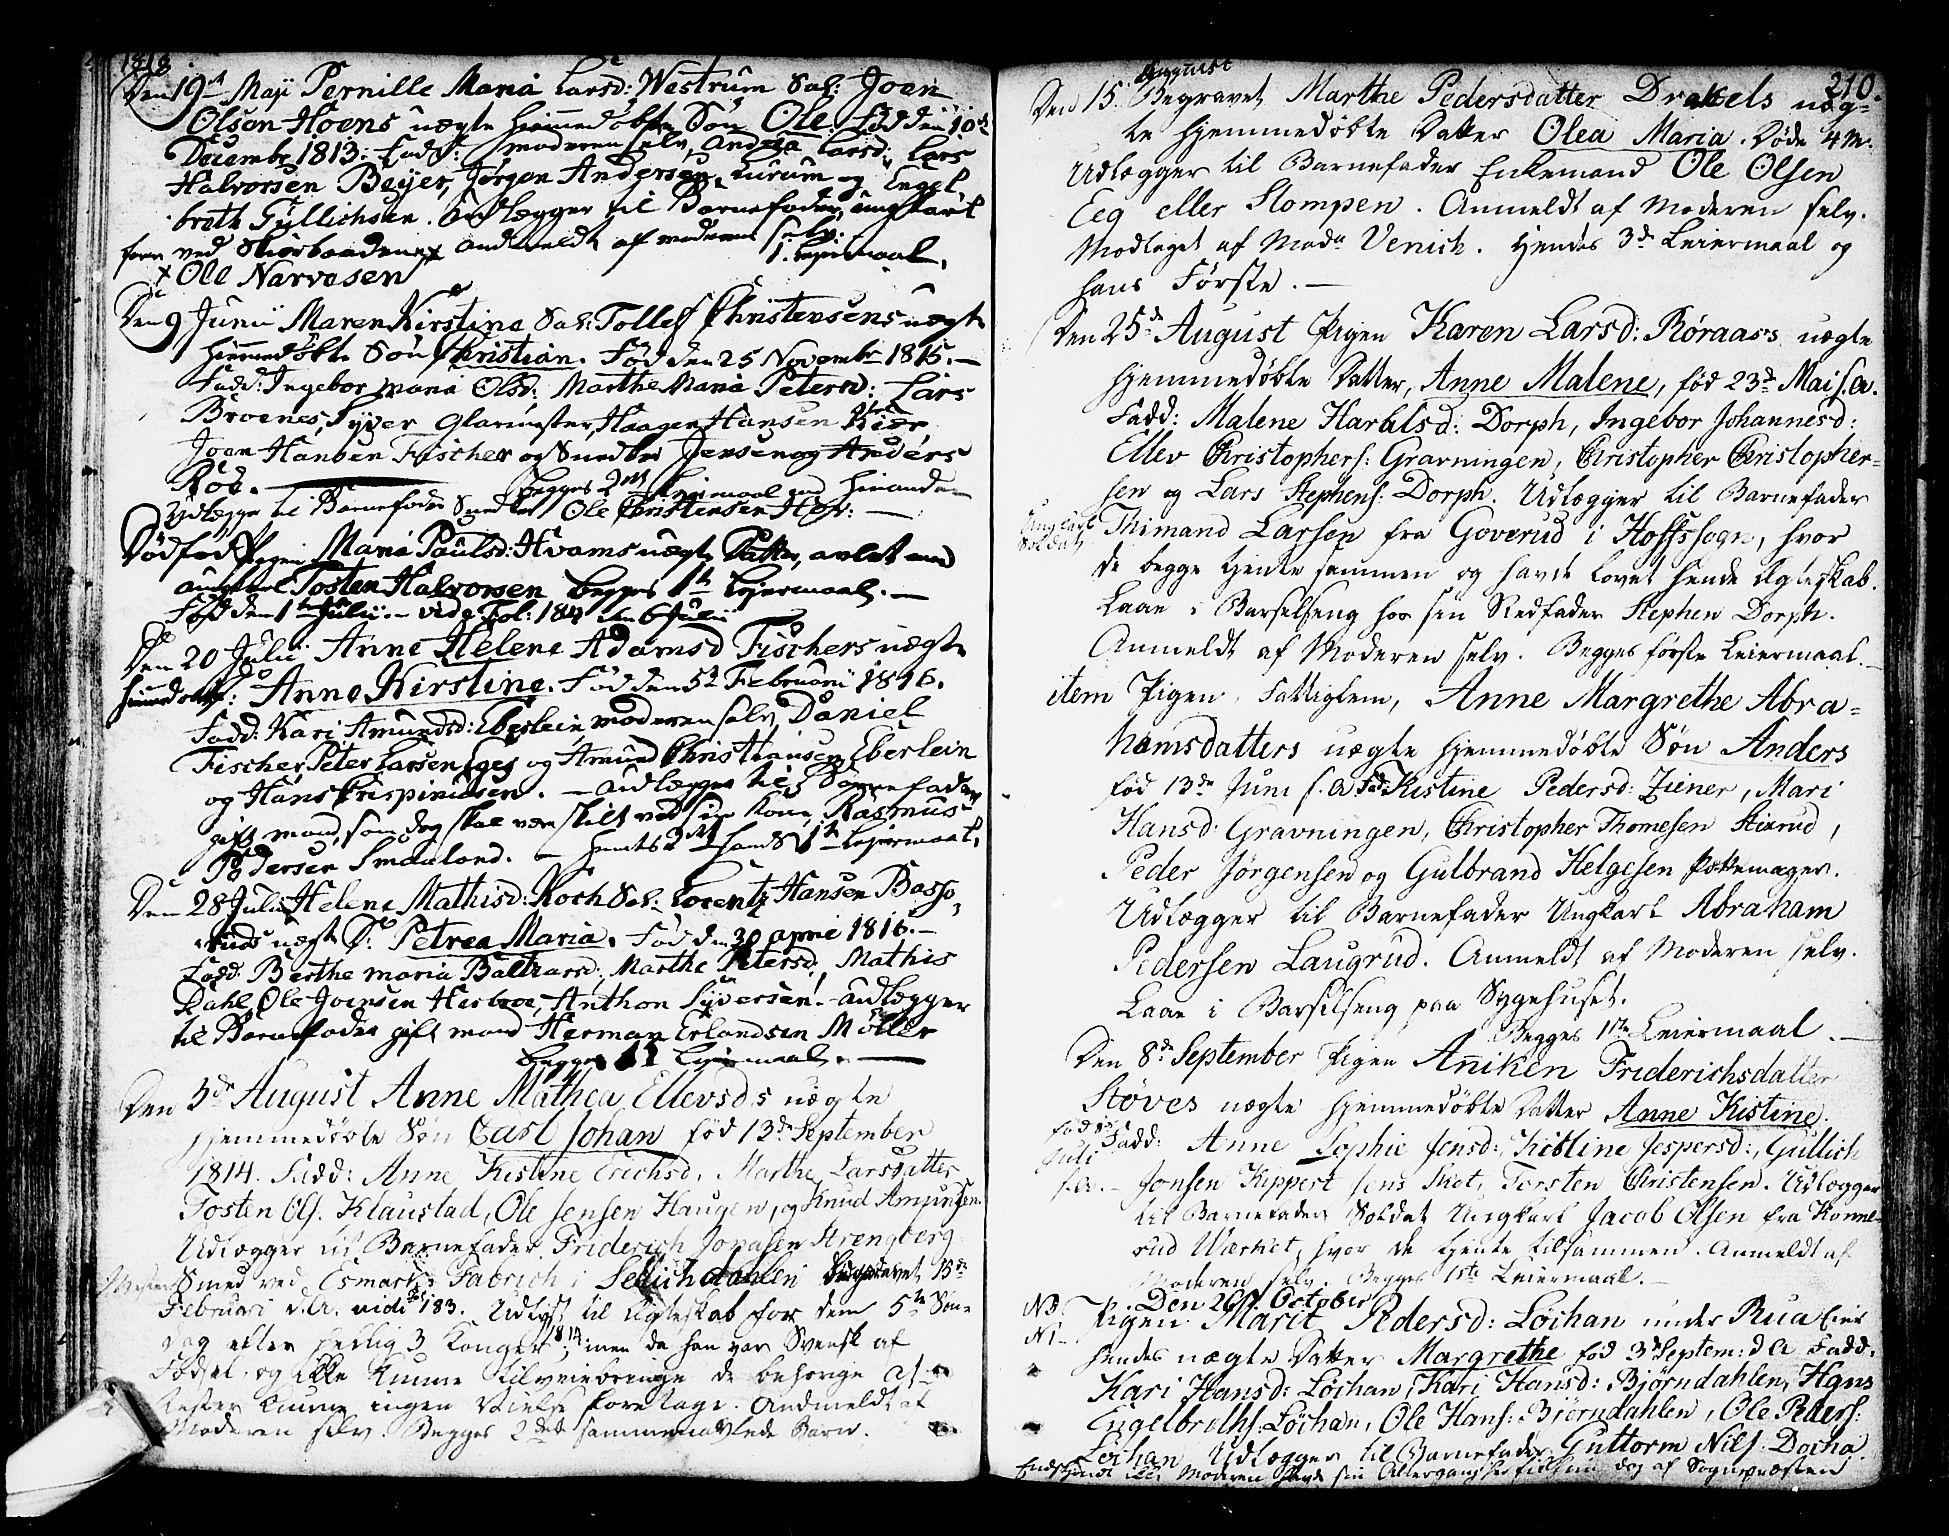 1816
Den 19de Maji Pernille Maria Larsd: Westrum Sal: Joen
Olsen Hoens uægte hiemmedøbte Søn Ole. Fød den 10de
Decembr 1813: Fadd: moderen selv, Andrea Larsd: Lars
Halvorsen Beyer, Jørgen Andersen Lurum og Engel-
breth Gullichsen. Udlægger til Barnefader ungkarl
ved andmeldt af moderen selv.
1. Lejermaal.
x Ole Narvesen
Den 9 Junii Maren Kirstina Sal: Tollef Christensens uægte
hiemmedøbte Søn Christian. Fød den 25 Novembr 1815. —
Fadd: Ingebor Maria Olsd: Marthe Maria Petersd: Lars
Broenes, Syver Glarmester, Haagen Hansen Kier,
Joen Hansen Fischer og Snedker Jensen og Anders
Röd. — begges 2det Leiermaal med hinanden
Udlægger til Barnefader Snedker Ole Christensen —
Dødfød Pigen Maria Paulsd: Hvams uægte Datter, avlet med
ungkarl Tosten Halvorsen begges 1te Lejermaal. —
Fød den 1te Julii. — vide Fol: 184 den 6 Julii
Den 20 Julii Anne Helene Adamsd Fischers uægte
hiemmedøbte: Anne Kirstine. Fød den 5te Februarii 1816.
Fadd: Kari Amundsd: Eberlein moderen selv, Daniel
Fischer, Peter Larsen Eges og Amund Christiansen Eberlein
og Hans Crispiniusen. — Udlægger til Barnefader
gift mand, som dog skal være skilt ved sin Kone, Rasmus
Pedersen Smaaland. — hendes 2det hans 1te Lejermaal.
Den 28 Julii Helene Mathisd: Koch Sal: Lorentz Hansen Basse-
ruds uægte D: Petrea Maria. Fød den 30 April 1816. —
Fadd: Berthe Maria Baltzarsd: Marthe Petersd, Mathis
Dahl, Ole Joensen Herbroe, Anthon Syversen. — Udlægger
til Barnefader gift mand Herman Erlandsen Møller
begges Lejermaal. —
Den 3de August Anne Mathea Ellevsd:s uægte
hjemmedøbte Søn Carl Johan fød 13de September
1814. Fadd: Anne Kistine Erichsd. Marthe Larsdatter
Tosten Ols. Klaustad, Ole Jensen Haugen, og Knud Amundsen.
Udlægger til Barnefader Friderich Jonasen Strengberg
Smed ved Esmarks Fabrich i Sellichdahlen begravet 13de
Februari d.A. vidi 183. Udlyst til Ægteskab for dem 5te Søn-
dag efter hellig 3 Konger 1814: men da han var Svensk af
Fødsel og ikke kunne tilveiebringe de behørige At-
tester kunne ingen Vielse foretages. Andmeldt af
Moderen selv. Begges 2det sammenavlede Barn.
210.
August
Den 15. Begravet Marthe Pedersdatter Drakels uæg-
te hjemmedøbte Datter Olea Maria. Døde 4 M.
Udlægger til Barnefader Enkemand Ole Olsen
Eeg eller Stompen. Anmeldt af Moderen selv.
Modtaget af Mada Venich. Hendes 3de Leiermaal og
hans Første. —
Den 25de August Pigen Karen Larsd: Røraass uægte
hjemmedøbte Datter, Anne Malene, fød 23de Mai s.A.
Fadd: Malene Haraldsd: Dorph, Ingebor Johannesd:
Ellev Christophers: Gravningen, Christopher Christopher-
sen og Lars Stephens: Dorph. Udlægger til Barnefader
Ungkarl
Soldat Thimand Larsen fra Goverud i Hoffssogn, hvor
de begge tjente sammen og havde lovet hende Ægteskab.
Laae i Barselseng hos sin Stedfader Stephen Dorph.
Anmeldt af Moderen selv. Begges første Leiermaal. —
item Pigen, Fattiglem, Anne Margrethe Abra-
hamsdatters uægte hjemmedøbte Søn Anders
fød 13de Juni s.A. Fad: Kistine Pedersd: Ziener, Mari
Hansd: Gravningen, Christopher Thomesen Stierud,
Peder Jørgensen og Gulbrand Helgesen Pottemager.
Udlægger til Barnefader Ungkarl Abraham
Pedersen Laugrud. Anmeldt af Moderen selv.
Laae i Barselseng paa Sygehuset.
Begges 1ste Leiermaal. —
Den 8de September Pigen Aniken Friderichsdatter
Støves uægte hjemmedøbte Datter Anne Kistine.
fød 8de
Juli
s.A. — Fadd: Anne Sophie Jensd:, Kistine Jespersd:, Gullich
Jonsen Kippert Jens Skot, Torsten Christensen. Udlægger
til Barnefader Soldat Ungkarl Jacob Olsen fra Konne-
rud Værket, hvor de tjente tilsammen. Anmeldt af
Moderen selv. Begges 1ste Leiermaal. —
Den 20de October
NB. Pigen Marit Pedersd: Løchan under Rua
hendes uægte Datter Margrethe fød 3de Septem: d.A. Fadd:
Kari Hansd: Løchan, Kari Hansd: Bjørndahlen, Hans
Engelbreths: Løchan, Ole Hans: Bjørndahlen, Ole Peders:
Løchan Udlægger til Barnefader Guttorm Nils. Docha
Moderen sin dog af Sognpræsten